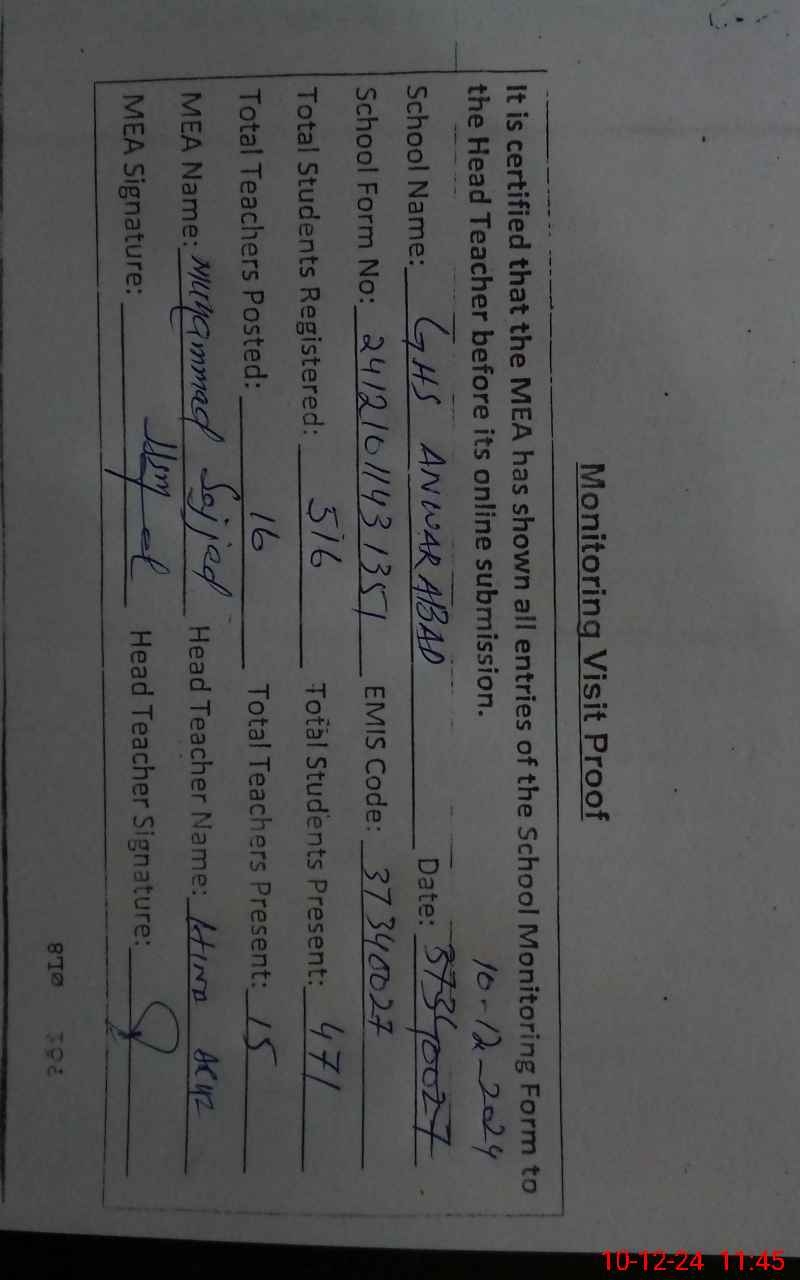 Monitoring Visit Proof
It is certified that the MEA has shown all entries of the School Monitoring Form to
the Head Teacher before its online submission.
10-12-2024
School Name: GHS ANWAR ABAD Date: 37340027
School Form No: 24121011431351 EMIS Code: 37340027
Total Students Registered: 516 Total Students Present: 471
Total Teachers Posted: 16 Total Teachers Present: 15
MEA Name: Muhammad Sajjad Head Teacher Name: HINA
MEA Signature: Head Teacher Signature:
10-12-24 11:45